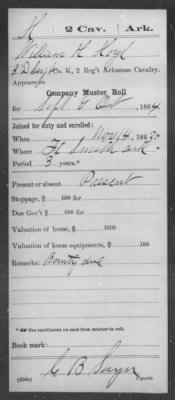 H 2 Cav. Ark.
William H Hoyl
3 Duty, Co. K, 2 Reg't Arkansas Cavalry.
Appears on
Company Muster Roll
for Sept & Oct, 1864
Joined for duty and enrolled:
When Nov 4, 1863*
Where Ft Smith Ark *
Period 3 years.*
Present or absent Present
Stoppage, $ 100 for
Due Gov't $ 100 for
Valuation of horse, $ 100
Valuation of horse equipments, $ 100
Remarks: Bounty due
* See enrollment on card from muster-in roll.
Book mark:
C B
Copyist.